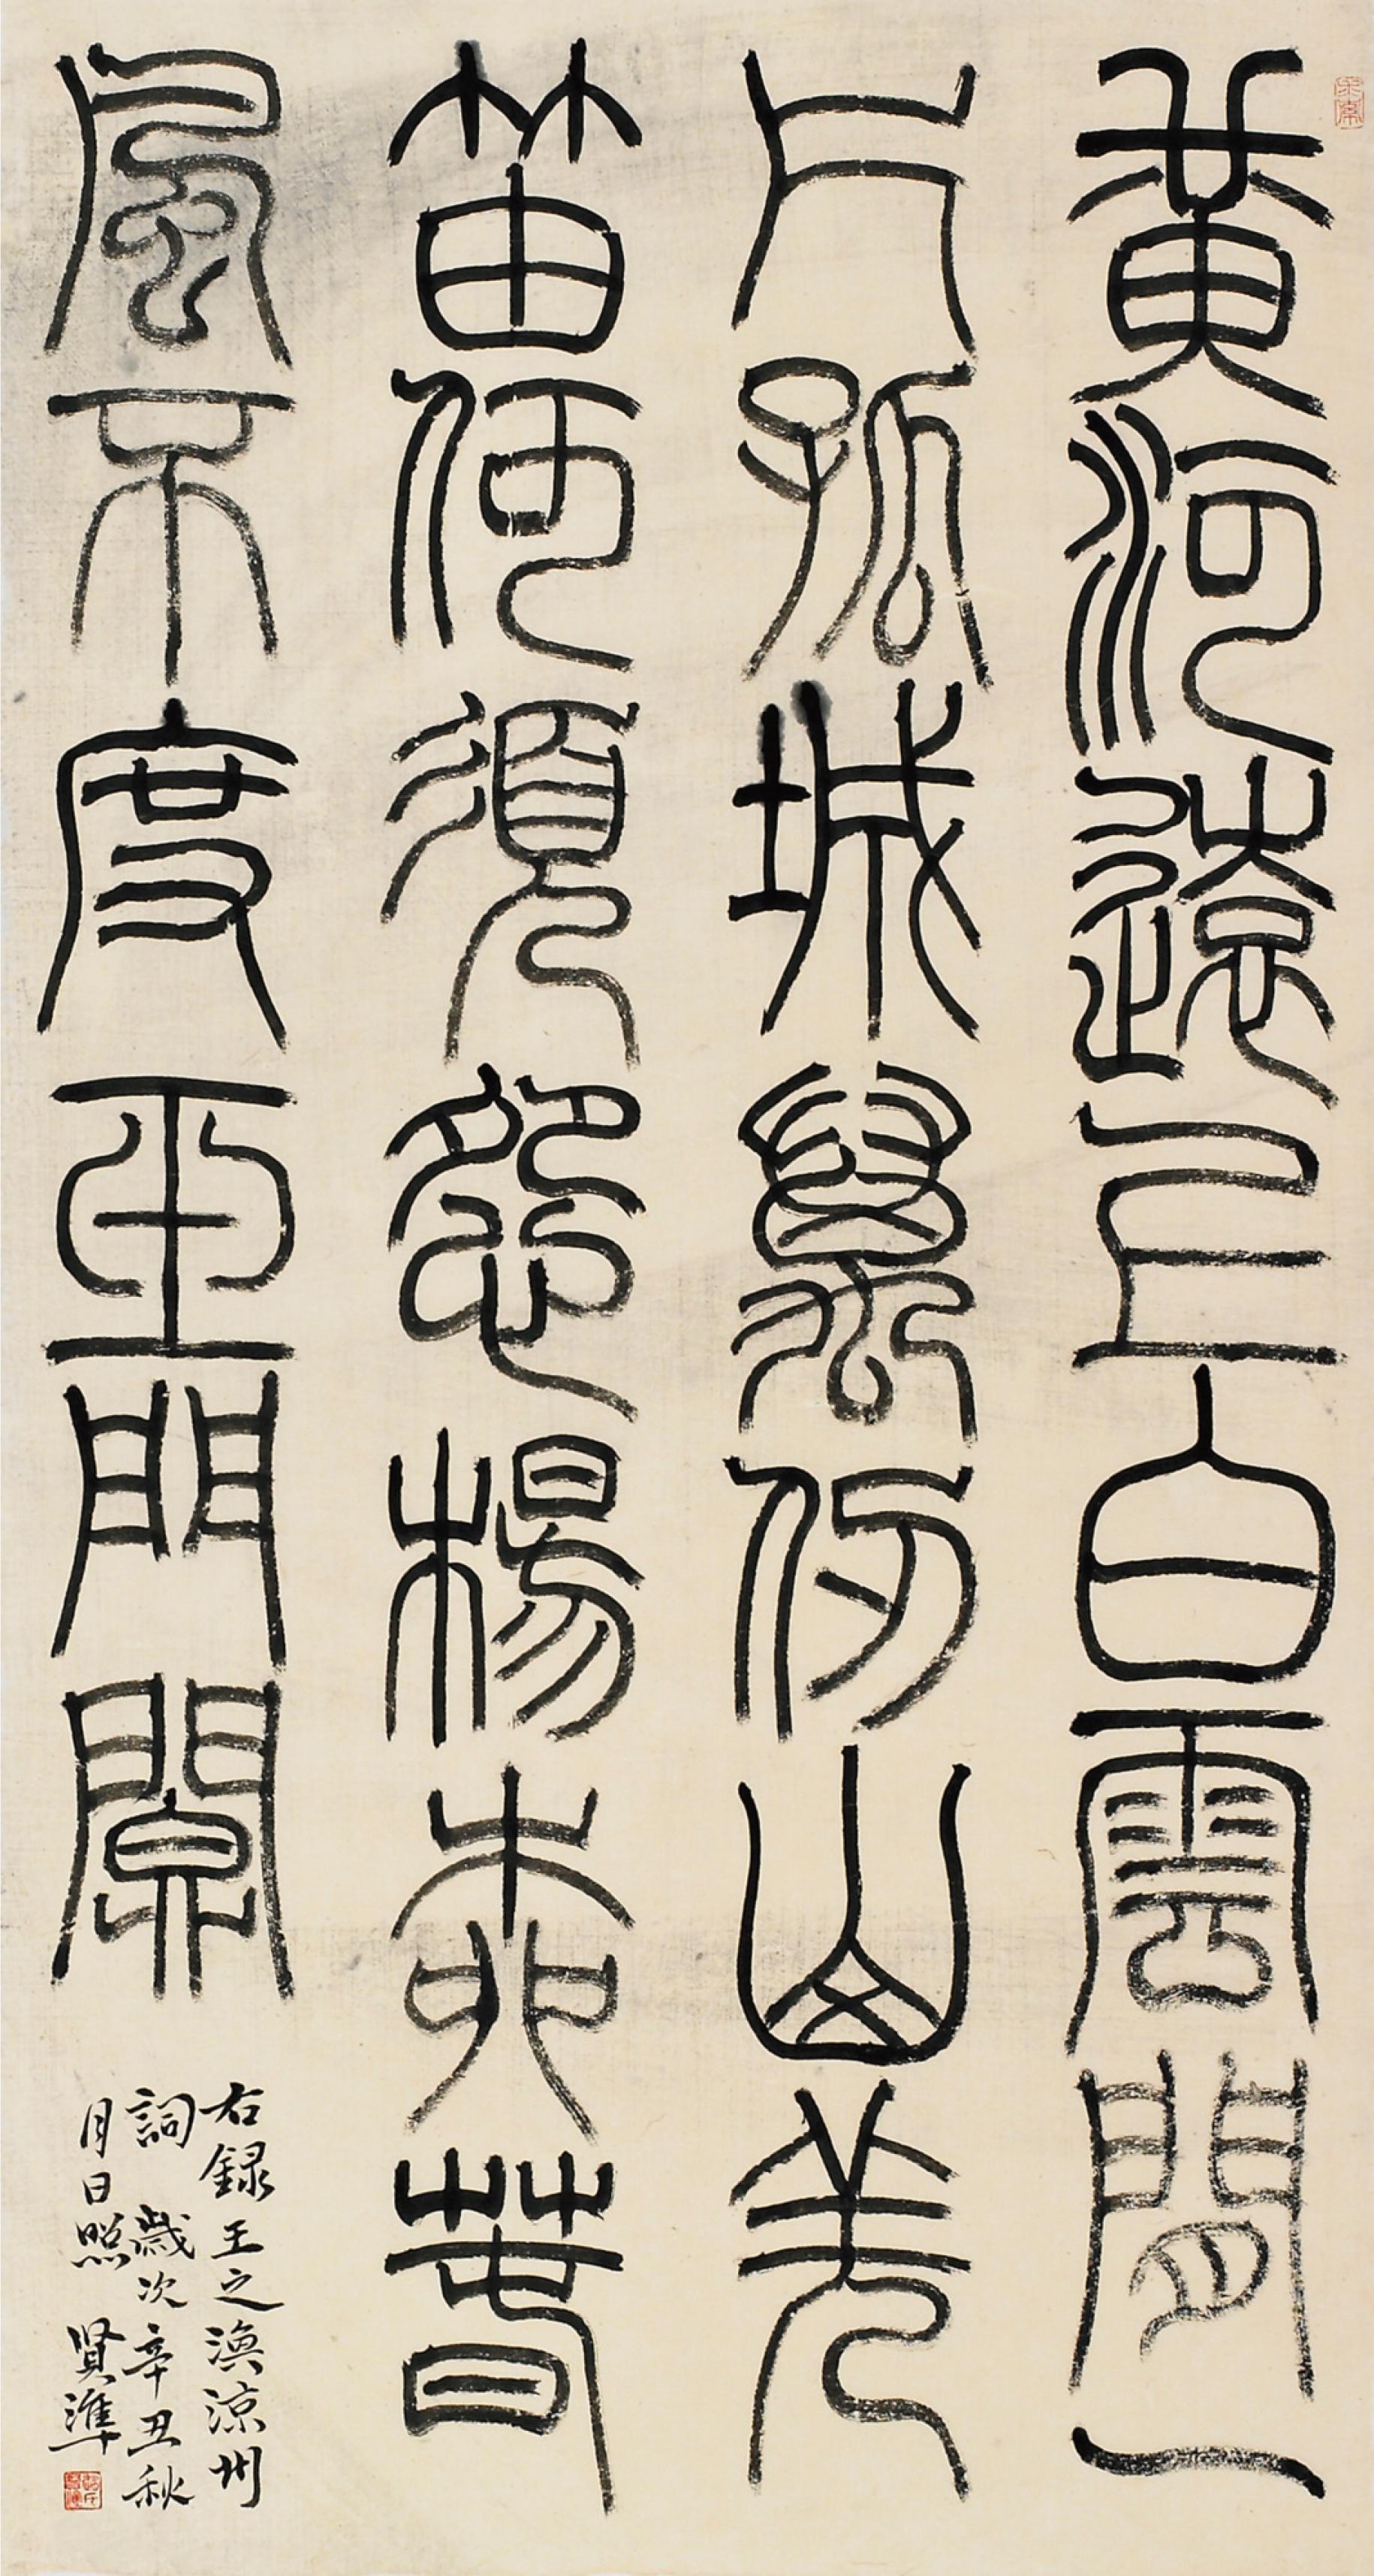 黃河遠上白雲間一
片孤城萬仞山羌
笛何須怨楊柳春
風不度玉門關
右録王之渙涼州
詞 歲次辛丑秋
月日照 賢準